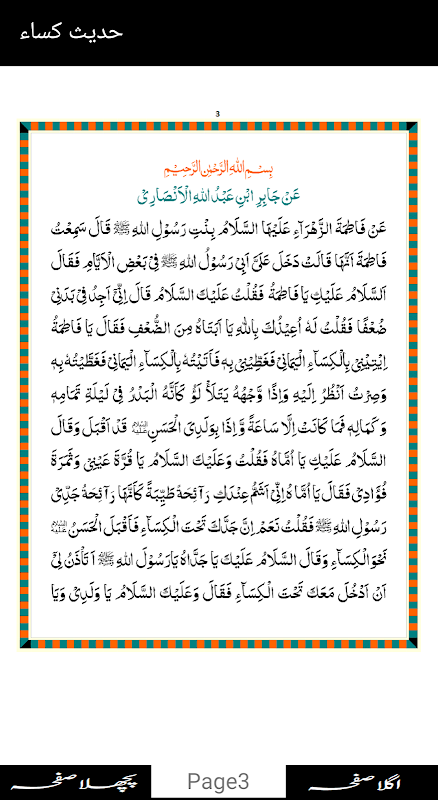 حدیث کساء
3
بِسْمِ اللهِ الرَّحْمٰنِ الرَّحِيْمِ
عَنْ جَابِرِ ابْنِ عَبْدُ اللهِ الْاَنْصَارِيْ
عَنْ فَاطِمَةَ الزَّهْرَآءِ عَلَيْهَا السَّلَامُ بِنْتِ رَسُوْلِ اللهِ ﷺ قَالَ سَمِعْتُ
فَاطِمَةَ اَنَّهَا قَالَتْ دَخَلَ عَلَىَّ اَبِيْ رَسُوْلُ اللهِ ﷺ فِيْ بَعْضِ الْاَيَّامِ فَقَالَ
اَلسَّلَامُ عَلَيْكِ يَا فَاطِمَةُ فَقُلْتُ عَلَيْكَ السَّلَامُ قَالَ اِنِّيْ اَجِدُ فِيْ بَدَنِيْ
ضُعْفًا فَقُلْتُ لَهٗ اُعِيْذُكَ بِاللهِ يَا اَبَتَاهُ مِنَ الضُّعْفِ فَقَالَ يَا فَاطِمَةُ
اِيْتِيْنِيْ بِالْكِسَآءِ الْيَمَانِيْ فَغَطِّيْنِيْ بِهٖ فَاَتَيْتُهٗ بِالْكِسَآءِ الْيَمَانِيْ فَغَطَّيْتُهٗ بِهٖ
وَصِرْتُ اَنْظُرُ اِلَيْهِ وَاِذًا وَّجْهُهٗ يَتَلَأْ لَؤُ كَاَنَّهُ الْبَدْرُ فِيْ لَيْلَةِ تَمَامِهٖ
وَكَمَالِهٖ فَمَا كَانَتْ اِلَّا سَاعَةً وَّاِذَا بِوَلَدِيَ الْحَسَنِ قَدْ اَقْبَلَ وَقَالَ
السَّلَامُ عَلَيْكِ يَا اُمَّاهُ فَقُلْتُ وَعَلَيْكَ السَّلَامُ يَا قُرَّةَ عَيْنِيْ وَثَمَرَةَ
فُؤَادِيْ فَقَالَ يَا اُمَّاهُ اِنِّيْ اَشَمُّ عِنْدَكِ رَآئِحَةً طَيِّبَةً كَاَنَّهَا رَآئِحَةُ جَدِّيْ
رَسُوْلِ اللهِ ﷺ فَقُلْتُ نَعَمْ اِنَّ جَدَّكَ تَحْتَ الْكِسَآءِ فَاَقْبَلَ الْحَسَنُ
نَحْوَ الْكِسَآءِ وَقَالَ السَّلَامُ عَلَيْكَ يَا جَدَّاهُ يَارَسُوْلَ اللهِ ﷺ اَتَأْذَنُ لِيْ
اَنْ اَدْخُلَ مَعَكَ تَحْتَ الْكِسَآءِ فَقَالَ وَعَلَيْكَ السَّلَامُ يَا وَلَدِيْ وَيَا
پچھلا صفحہ Page3 اگلا صفحہ